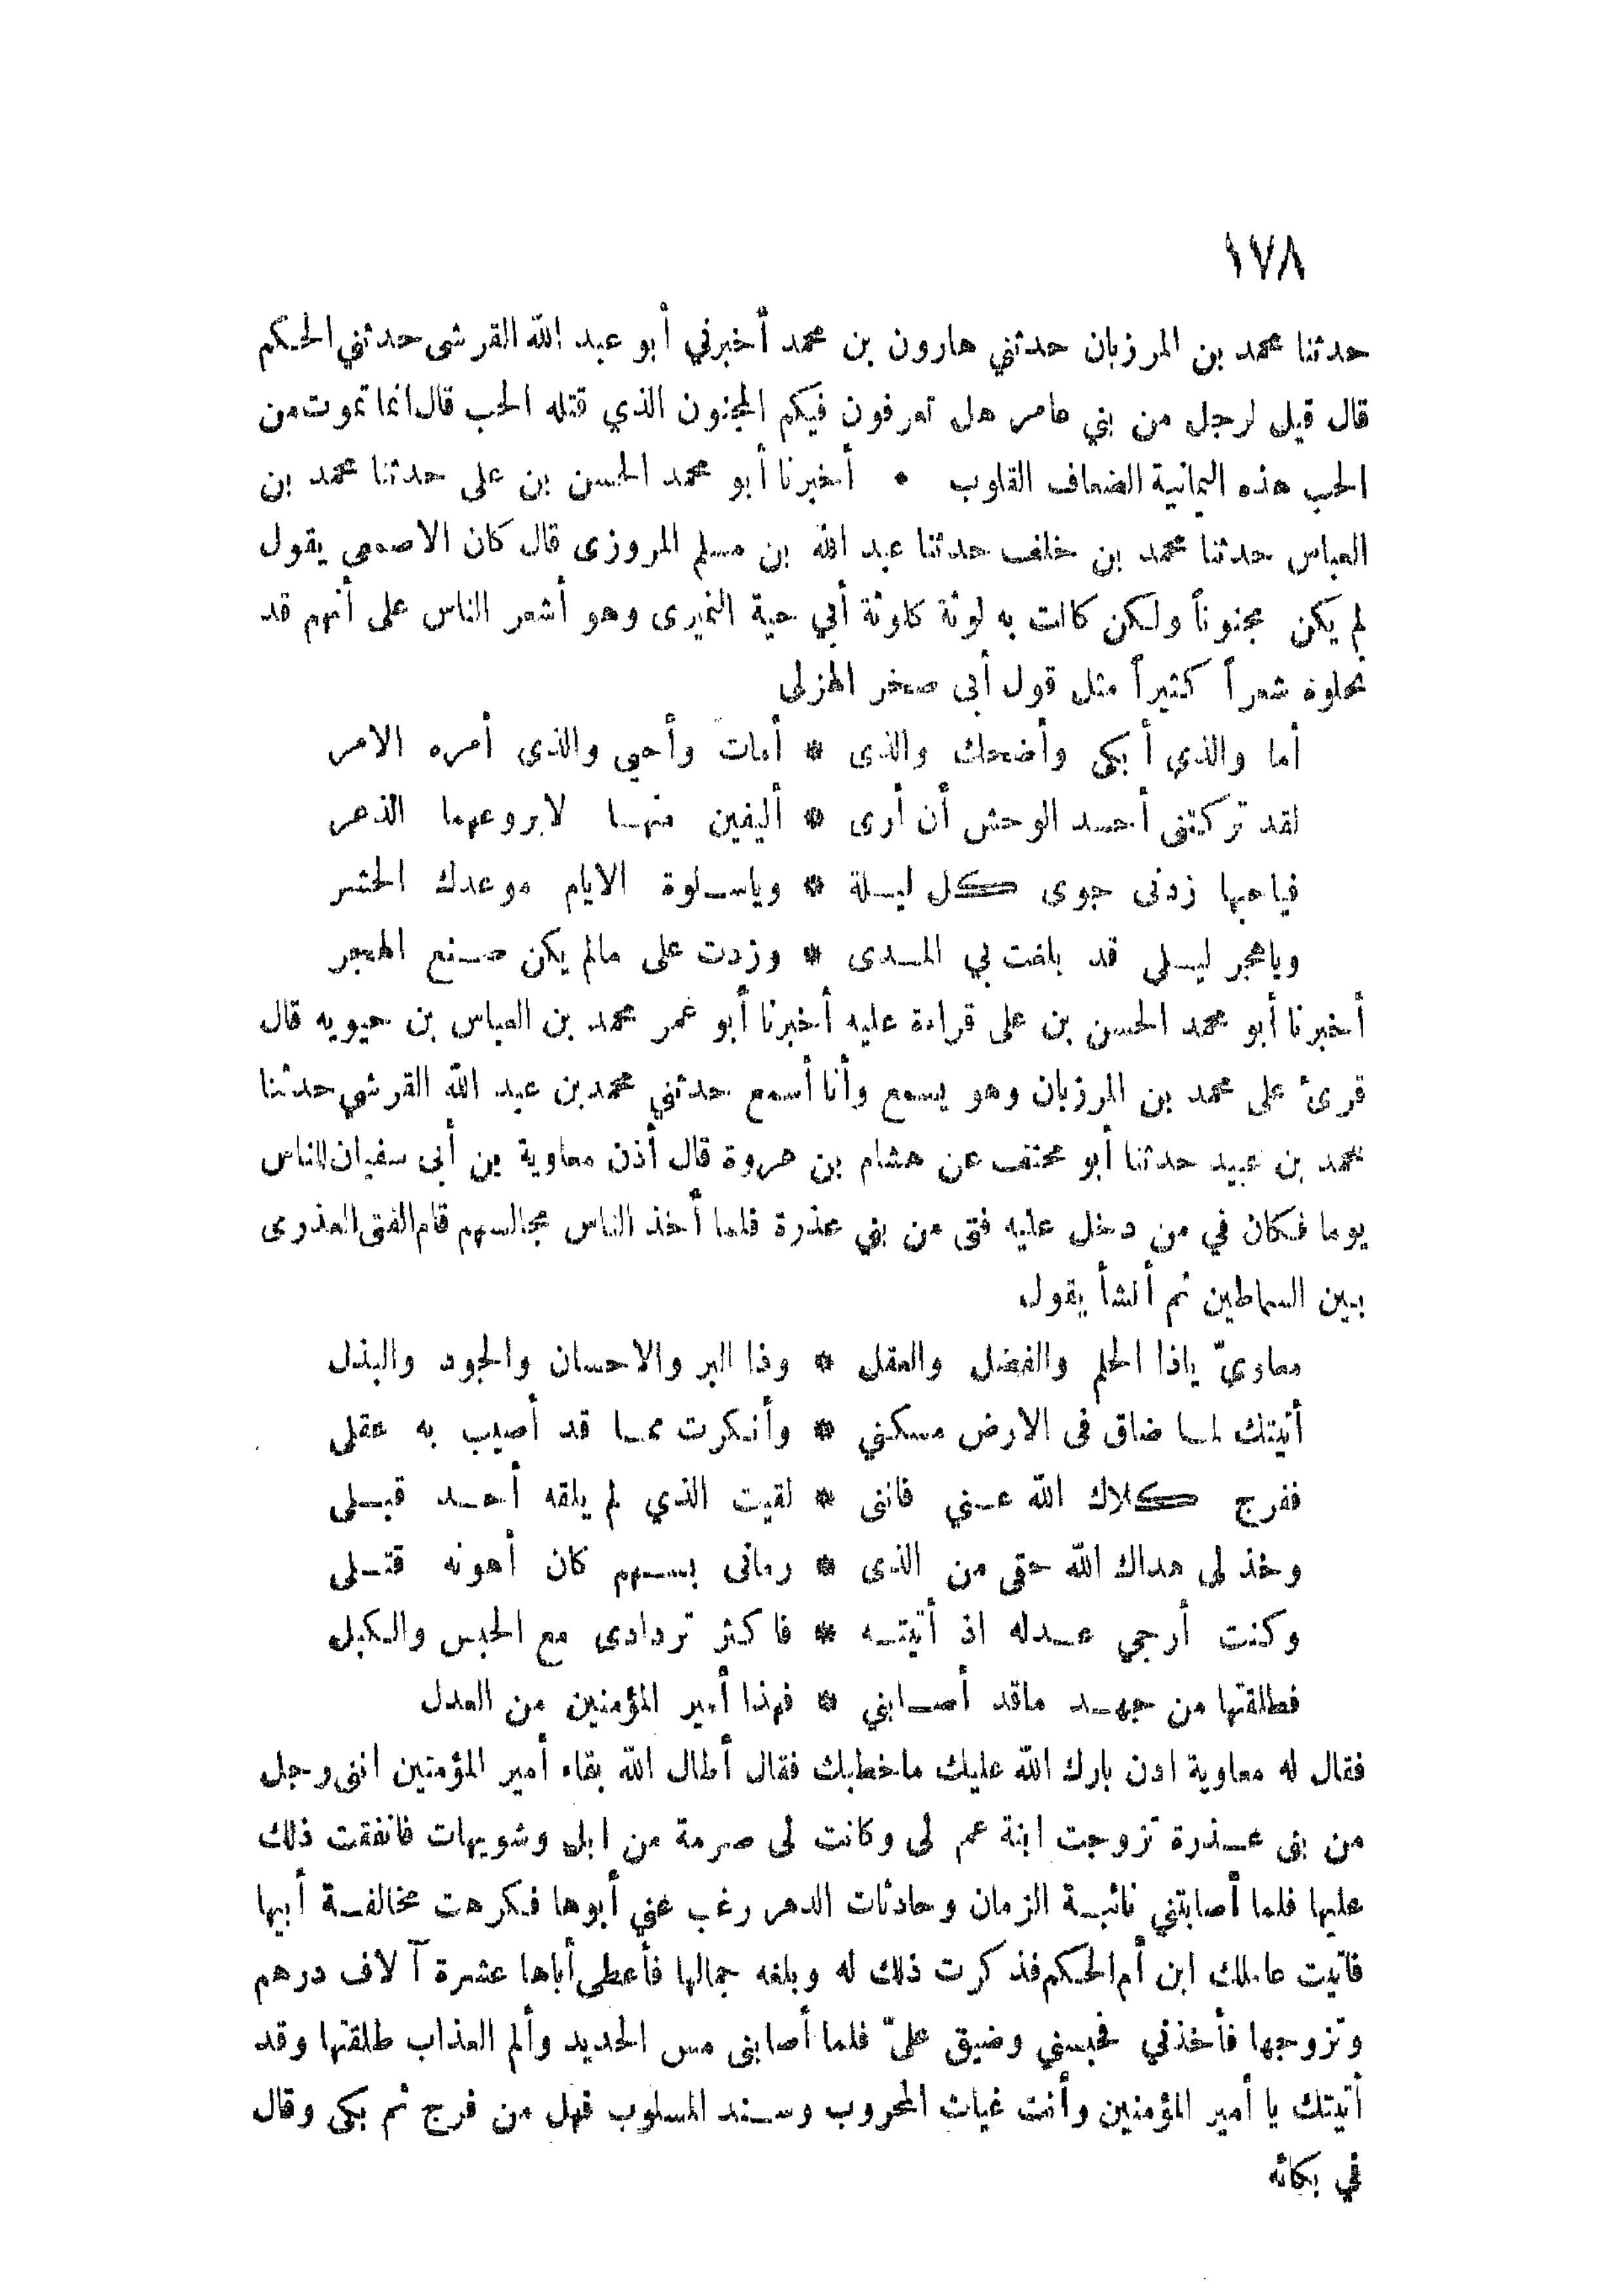 ١٧٨
حدثنا محمد بن المرزبان حدثني هارون بن محمد أخبرني أبو عبد الله القرشى حدثني الحكم
قال قيل لرجل من بني عامر هل تعرفون فيكم المجنون الذي قتله الحب قال انما تموت من
الحب هذه اليمانية الضعاف القلوب • أخبرنا أبو محمد الحسن بن على حدثنا محمد بن
العباس حدثنا محمد بن خلف حدثنا عبد الله بن مسلم المروزى قال كان الاصمعي يقول
لم يكن مجنوناً ولكن كانت به لوثة كلوثة أبي حية النميرى وهو أشعر الناس على أنهم قد
نحلوه شعراً كثيراً مثل قول أبى صخر الهزلى
أما والذي أبكى وأضحك والذى * أمات وأحيي والذى أمره الامر
لقد تركتنى أحسد الوحش أن أرى * أليفين منها لايروعهما الذعر
فياحبها زدنى جوى كل ليلة * وياسلوة الايام موعدك الحشر
وياهجر ليلى قد بلغت بي المدى * وزدت على مالم يكن صنع الهجر
أخبرنا أبو محمد الحسن بن على قراءة عليه أخبرنا أبو عمر محمد بن العباس بن حيويه قال
قرئ على محمد بن المرزبان وهو يسمع وأنا أسمع حدثني محمد بن عبد الله القرشي حدثنا
محمد بن عبيد حدثنا أبو مخنف عن هشام بن عروة قال أذن معاوية بن أبى سفيان للناس
يوما فكان في من دخل عليه فتى من بني عذرة فلما أخذ الناس مجالسهم قام الفتى العذرى
بين السماطين ثم أنشأ يقول
معاويّ ياذا الحلم والفضل والعقل * وذا البر والاحسان والجود والبذل
أتيتك لما ضاق فى الارض مسكني * وأنكرت مما قد أصيب به عقلى
ففرج كلاك الله عني فاننى * لقيت الذي لم يلقه أحد قبلى
وخذ لى هداك الله حقى من الذى * رمانى بسهم كان أهونه قتلى
وكنت أرجي عدله اذ أتيته * فاكثر تردادى مع الحبس والكبل
فطلقتها من جهد ماقد أصابني * فهذا أمير المؤمنين من العدل
فقال له معاوية ادن بارك الله عليك ماخطبك فقال أطال الله بقاء أمير المؤمنين اننى رجل
من بنى عذرة تزوجت ابنة عم لى وكانت لى صرمة من ابل وشويهات فانفقت ذلك
عليها فلما أصابتني نائبة الزمان وحادثات الدهر رغب عني أبوها فكرهت مخالفة أبيها
فاتيت عاملك ابن أم الحكم فذكرت ذلك له وبلغه جمالها فأعطى أباها عشرة آلاف درهم
وتزوجها فأخذني فحبسني وضيق علىّ فلما أصابنى مس الحديد وألم العذاب طلقتها وقد
أتيتك يا أمير المؤمنين وأنت غياث المحروب وسند المسلوب فهل من فرج ثم بكى وقال
في بكائه